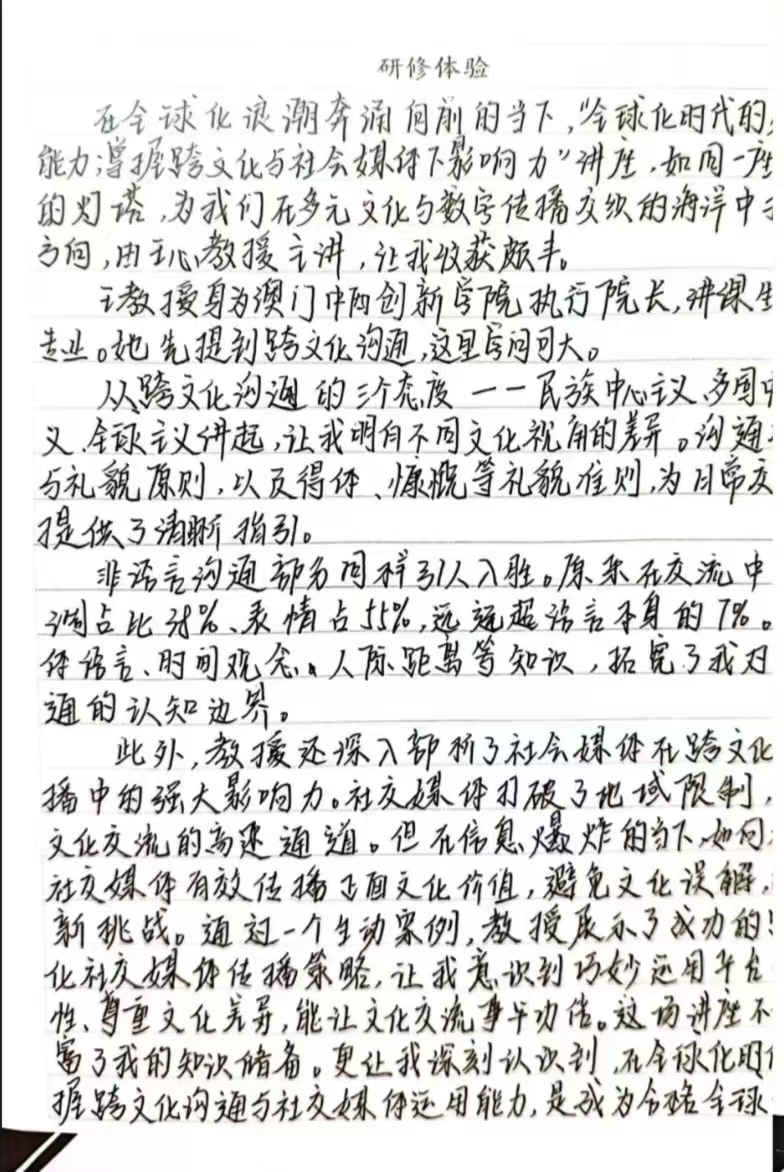 研修体验
在全球化浪潮奔涌向前的当下，“全球化时代的
能力：掌握跨文化与社会媒体下影响力”讲座，如同一座
的灯塔，为我们在多元文化与数字传播交织的海洋中
方向，由王心教授主讲，让我收获颇丰。
王教授身为澳门中西创新学院执行院长，讲课生
专业。她先提到跨文化沟通，这里学问可大。
从跨文化沟通的三个态度——民族中心主义、多国中
义、全球主义讲起，让我明白不同文化视角的差异。沟通
与礼貌原则，以及得体、慷慨等礼貌准则，为日常交
提供了清晰指引。
非语言沟通部分同样引人入胜。原来在交流中
调占比38%、表情占55%，远远超语言本身的7%。
体语言、时间观念、人际距离等知识，拓宽了我对
通的认知边界。
此外，教授还深入剖析了社会媒体在跨文化
播中的强大影响力。社交媒体打破了地域限制，
文化交流的高速通道。但在信息爆炸的当下，如何
社交媒体有效传播正面文化价值，避免文化误解，
新挑战。通过一个生动案例，教授展示了成功的
化社交媒体传播策略，让我意识到巧妙运用平台
性、尊重文化差异，能让文化交流事半功倍。这场讲座不
富了我的知识储备。更让我深刻认识到，在全球化时
握跨文化沟通与社交媒体运用能力，是成为合格全球